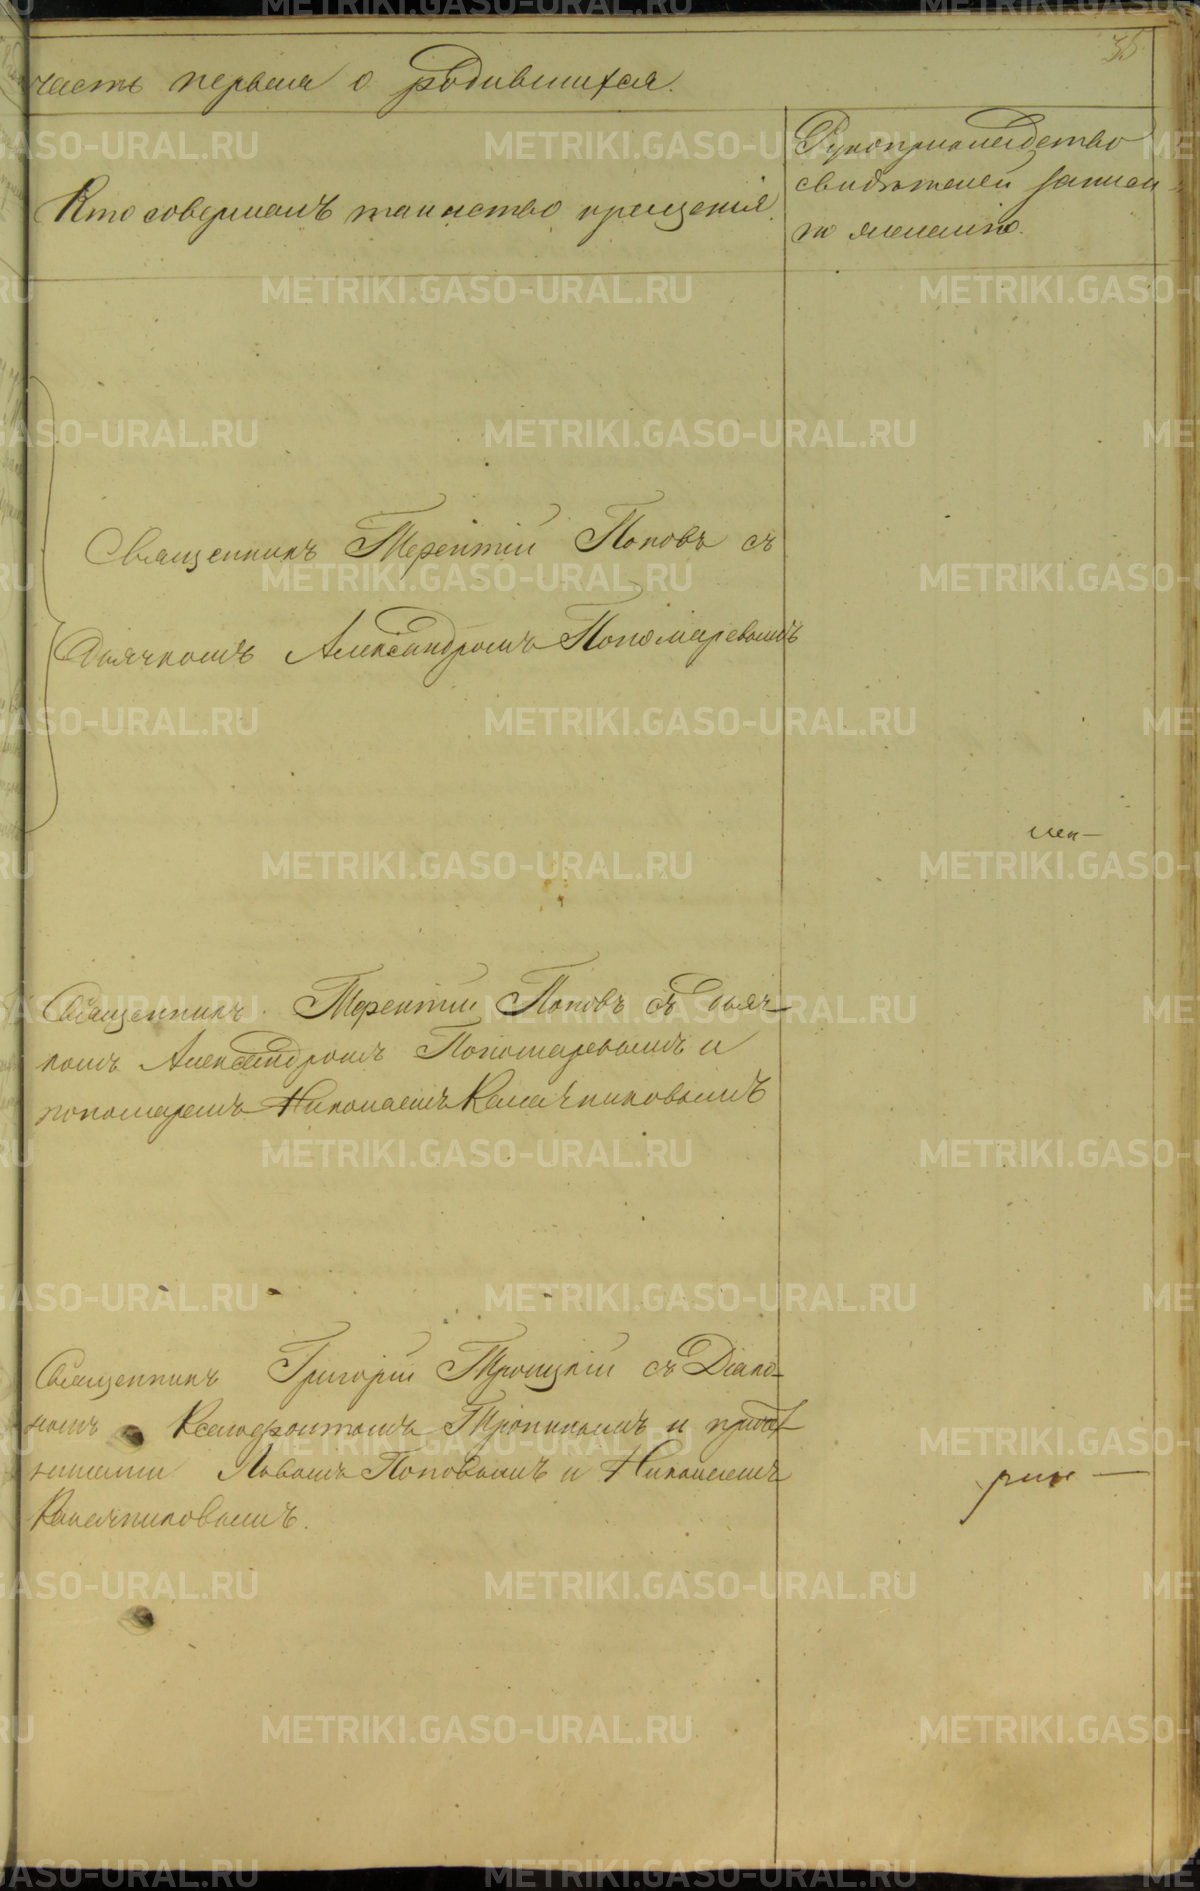 35
часть первая о родившихся.
Кто совершалъ таинство крещенія.
Рукоприкладство
свидѣтелей записи
по желанію.
Священникъ Терентій Поповъ съ
Дьячкомъ Александромъ Пономаревымъ
Священникъ Терентій Поповъ съ дьяч-
комъ Александромъ Пономаревымъ и
пономаремъ Николаемъ Калачниковымъ
Священникъ Григорій Троицкій съ Діако-
номъ Ксенофонтомъ и причет-
никами Львомъ Поповымъ и Николаемъ
Калачниковымъ.
METRIKI.GASO-URAL.RU